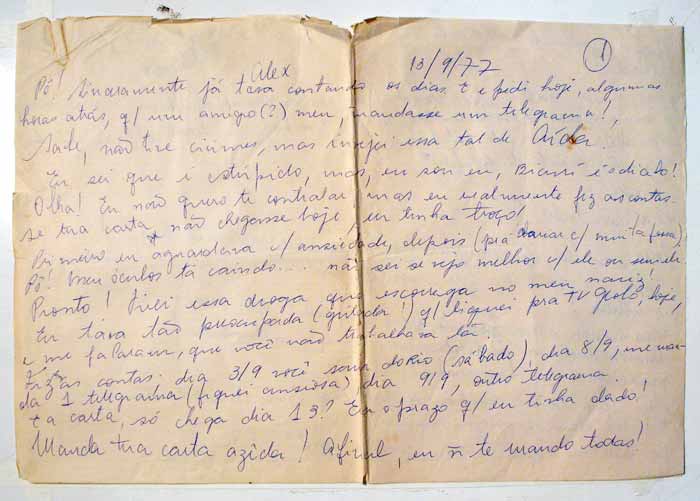 13/9/77 1
Alex
Pô! Sinceramente já tava contando os dias. E pedi hoje, algumas
horas atrás, q/ um amigo(?) meu, mandasse um telegrama!,
Sabe, não tive ciúmes, mas invejei essa tal de Aída.
Eu, sei que é estúpido, mas, eu sou eu, é o diabo!
Olha! Eu não quero te controlar, mas eu realmente fiz as contas.
se tua carta não chegasse hoje, eu tinha troço!
Primeiro eu aguardava c/ ansiedade, depois (prá danar c/ muita fossa)
Pô! Meu óculos tá caindo.... não sei se vejo melhor c/ ele ou sem ele
Pronto! Tirei essa droga que escorrega no meu nariz!
Eu tava tão preocupada (grilada!) q/ liguei pra TV Globo, hoje,
e me falaram, que você não trabalhava lá.
Fiz as contas: dia 3/9 você do Rio (sábado), dia 8/9, me man-
da 1 telegrama (fiquei ansiosa) dia 9/9, outro telegrama.
E a carta, só chega dia 13? Era o prazo q/ eu tinha dado!
Manda tua carta azêda! Afinal, eu ñ te mando todas!